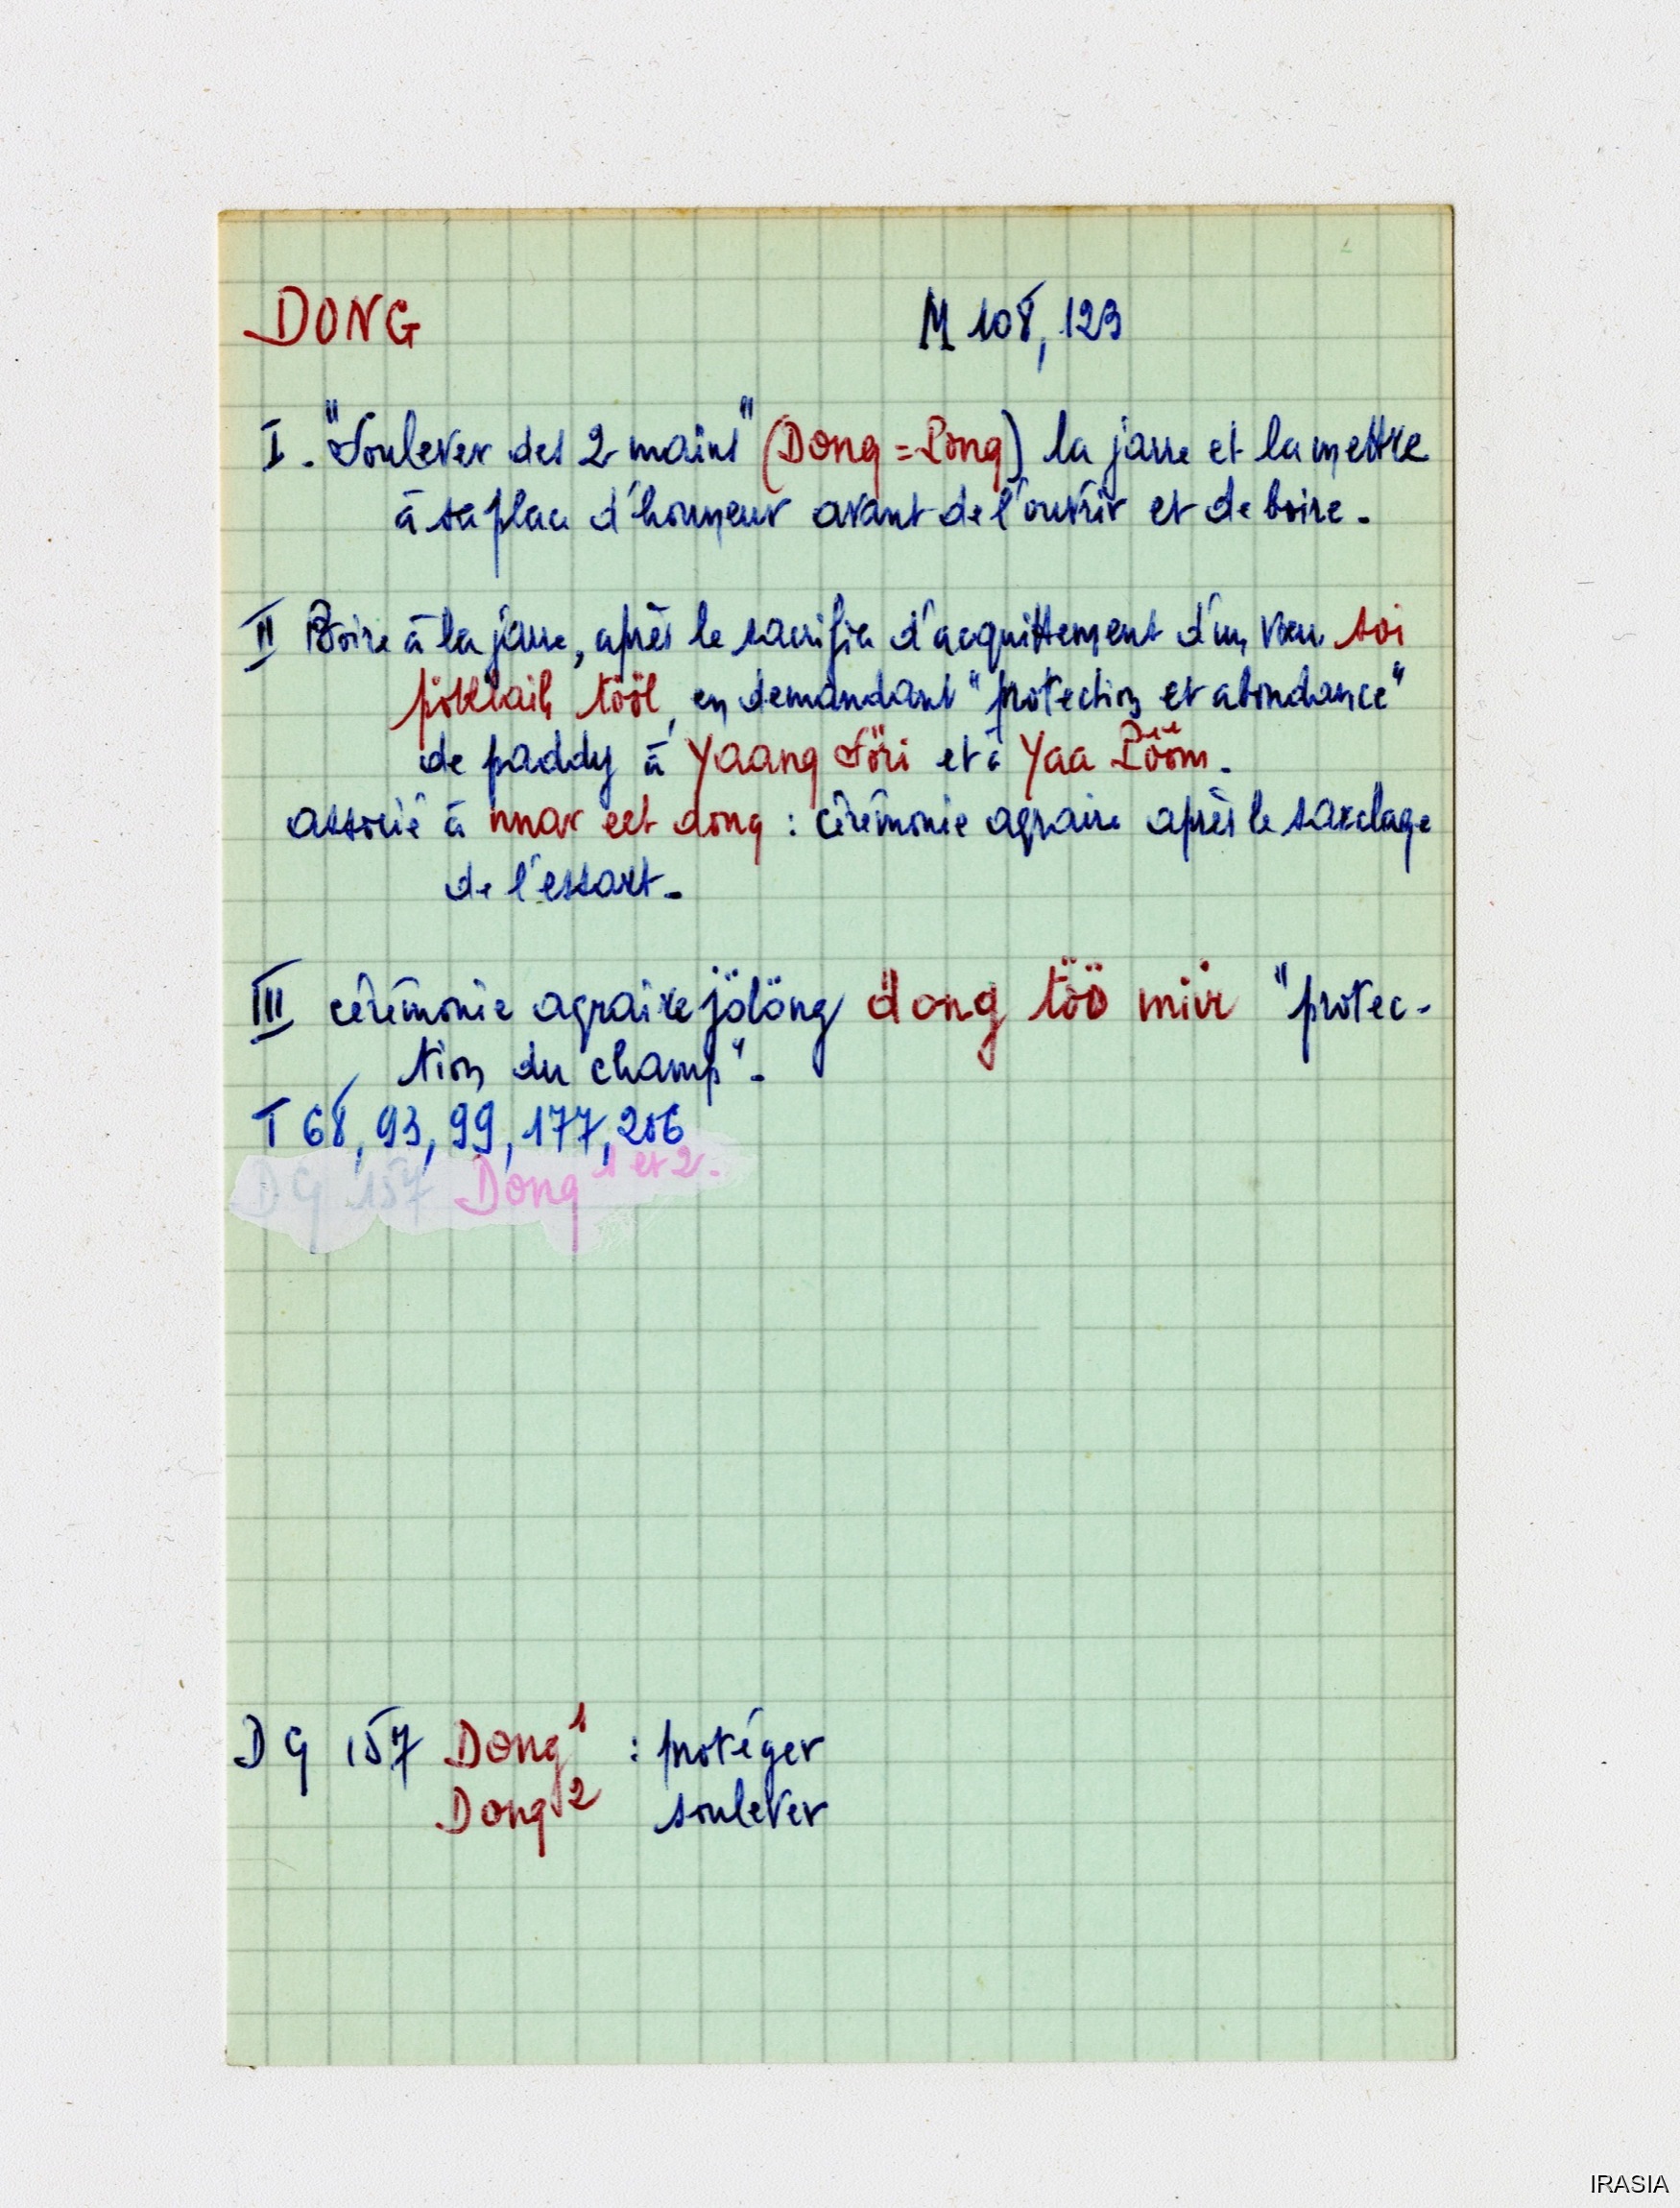 DONG M 108, 123
I. "Soulever des 2 mains" (Dong = Rong) la jarre et la mettre
à sa place d'honneur avant de l'ouvrir et de boire.
II Boire à la jarre, après le sacrifice d'acquittement d'un vœu soi
tööl, en demandant "protection et abondance"
de paddy à Yaang Söri et à Yaa Rööm.
associé à nnar eet dong : cérémonie agraire après le sarclage
de l'essart.
III cérémonie agraire jölöng dong töö miir "protec-
tion du champ".
T 68, 93, 99, 177, 206
DG 157 Dong 1 et 2.
DG 157 Dong 1 : protéger
Dong 2 soulever
IRASIA